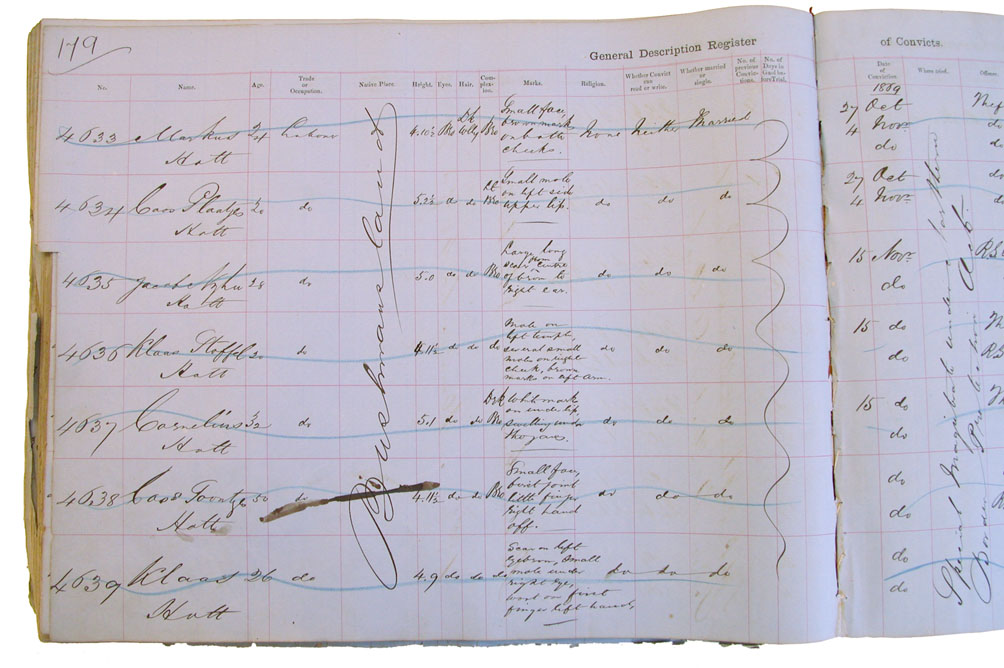 179
General Description Register of Convicts.
No. Name. Age. Trade or Occupation. Native Place. Height. Eyes. Hair. Complexion. Marks. Religion. Whether Convict can read or write. Whether married or single. No. of previous Convictions. No. of Days in Gaol before Trial. Date of Conviction. Where tried. Offence.
1869
Bushmans land
4633 Markus 24 Labour 4.10½ Dk Wolly Bro Small face brown mark on both cheeks. None Neither Married 27 Oct
Hott 4 Nov
do
4634 Coos Plaatje do 5.2½ do do Lt Bro Small mole on left side upper lip. do do do 27 Oct
Hott 4 Nov
4635 28 do 5.0 do do Bro Large long scar from to right ear. do do do 15 Nov
Hott do
4636 Klaas Stoffel 20 do 4.11½ do do do Mole on left temple, several small mole on right cheek, brown marks on left arm. do do do 15 do
Hott do
4637 Cornelius 32 do 5.1 do do Drk Bro White mark on under lip, swelling under the jaws. do do do 15 do
Hott do
4638 Coos Toontje 50 do 4.11½ do do Bro Small face, first joint little finger right hand off. do do do do
Hott do
4639 Klaas 26 do 4.9 do do do Scar on left eyebrow, small mole under right eye, wart on first finger left hand. do do do do
Hott do
Special Magistrate under
Border Protection Act.